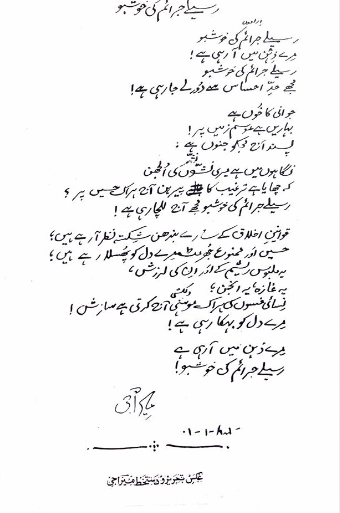 رسیلے جرائم کی خوشبو
رسیلے جرائم کی خوشبو
مرے ذہن میں آ رہی ہے!
رسیلے جرائم کی خوشبو
مجھے حدِّ احساس سے دور لے جا رہی ہے!
جوانی کا خوں ہے
بہاریں ہے موسم زمیں پر!
پسند آج مجھ کو جنوں ہے؛
نگاہوں میں ہے میری نشّوں کی الجھن
کہ چھایا ہے ترغیب کا پیرہن آج ہر اک حسیں پر؟
رسیلے جرائم کی خوشبو مجھے آج للچا رہی ہے!
قوانینِ اخلاق کے سارے بندھن شکستہ نظر آ رہے ہیں؛
حسیں اور ممنوع مرے دل کو پھسلا رہے ہیں؛
یہ ملبوس ریشم کے اور ان کی لرزش،
یہ غازہ یہ انجن؛
نسائی فسوں کی ہر اک موہنی آج کرتی ہے سازش!
مرے دل کو بہکا رہی ہے!
مرے ذہن میں آ رہی ہے
رسیلے جرائم کی خوشبو!
میرا جی
عکسِ تحریر و دستخط میراجی